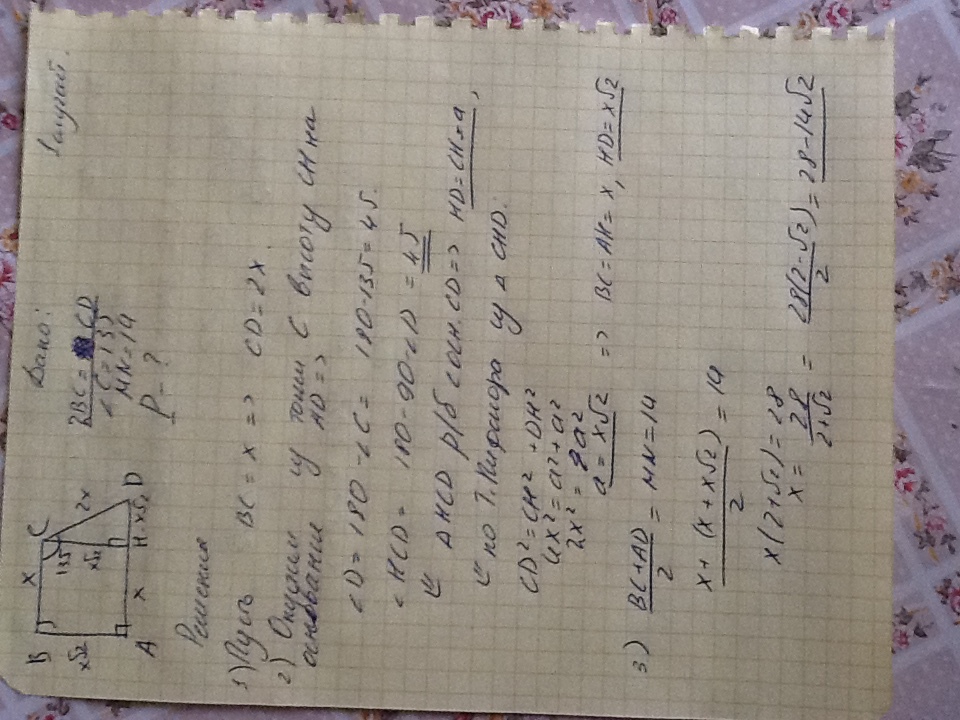 Дано:
2BC = CD
∠C = 135
MN = 14
P - ?
B x C
x√2 135 x√2 2x
A x H x√2 D
Решение
1) Пусть BC = x => CD = 2x
2) Опустим из точки C высоту CH на
основание AD =>
∠D = 180 - ∠C = 180 - 135 = 45.
∠HCD = 180 - 90 - ∠D = 45
ΔHCD р/б с осн. CD => HD = CH = a,
по т. Пифагора из Δ CHD.
CD² = CH² + DH²
4x² = a² + a²
2x² = a²
a = x√2 => BC = AH = x, HD = x√2
3) (BC + AD)/2 = MN = 14
(x + (x + x√2))/2 = 14
x(2 + √2) = 28
x = 28/(2 + √2) = 28(2 - √2)/2 = 28 - 14√2